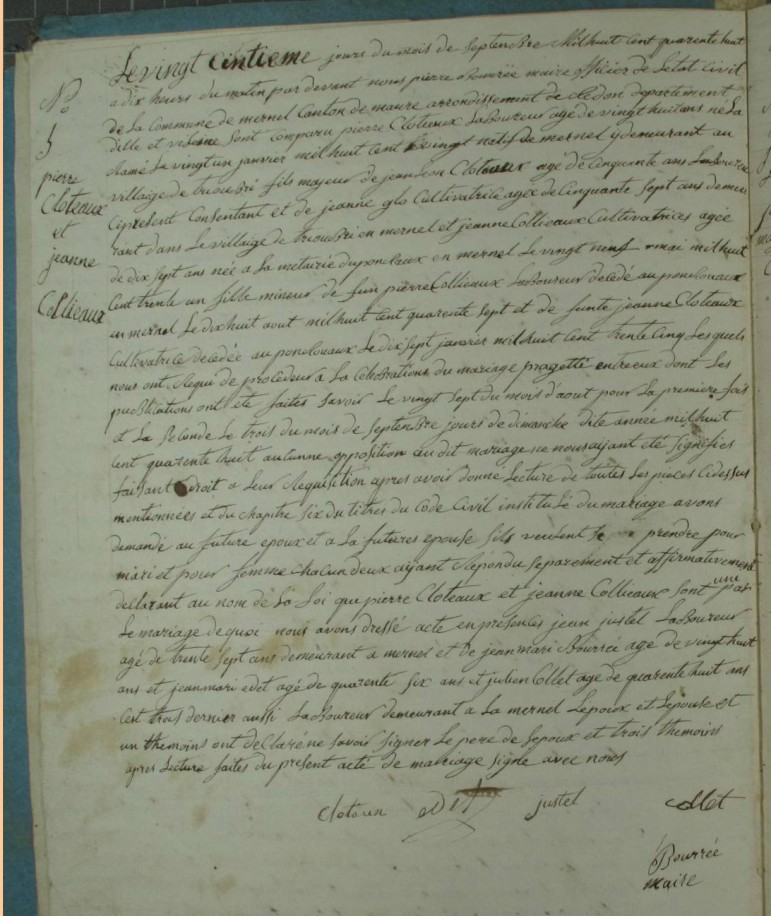 Le vingt cintieme jours du mois de septenbre Mil huit cent quarente huit
a dix heurs du matin par devant nous pierre Bourrée maire officier de Letat Civil
de La Commune de mernel Canton de maure arrondissement de Redon departement
dille et vilaine Sont comparu pierre Cloteaux Laboureur agé de vingt huit ans né La
Le vingt un janvier mil huit cent vingt natif de mernel y demeurant au
villaige de fils majeur de jean Cloteaux agé de Cinquante ans Laboureur
Cipresent Consentant et de jeanne glo Cultivatrice agée de Cinquante Sept ans demeu
rant dans Le villaige de en mernel et jeanne Collieaux Cultivatrices agée
de dix sept ans née a La metairie du en mernel Le vingt neuf mai mil huit
Cent trente un fille mineur de feu pierre Collieaux Laboureur decedé au
en mernel Le dix huit aout mil huit cent quarente sept et de feunte jeanne Cloteaux
Cultivatrice decedée au Le dix sept janvier mil huit Cent trente Cinq Lesquels
nous ont Requi de proceder a La Celebrations du mariage progetté entreux dont Les
publitations ont eté faites Savoir Le vingt sept du mois d'aout pour La premiere fois
et La Seconde Le trois du mois de septenbre jours de dimanche dite année mil huit
cent quarente huit aucunne opposition au dit mariage ne nous aÿant été signefiés
faisant Droit a Leur Requisition apres avoir Donné Lecture de toutes Les pieces Cidessus
mentionnées et du chapitre six du titres du Code Civil institulé du mariage avons
demandé au future epoux et a La futures epouse sils veulent se prendre pour
mari et pour femme chacun deux aÿant Repondu separement et affirmativement
declarant au nom de La Loi que pierre Cloteaux et jeanne Collieaux sont uni par
Le mariage de quoi nous avons dressé acte en presences jean justel Laboureur
agé de trente sept ans demeurant a mernel et de jean mari Bourrée age de vingt huit
ans et jean mari edet agé de quarente six ans et julien Collet age de quarente huit ans
Cest trois dernier aussi Laboureur demeurant a La mernel Lepoix et Lepouse et
un themoins ont declaré ne savoir signer Le pere de Lepoux et trois themoins
apres Lecture faites du present acté de marriage signé avec nous
N°
5
pierre
Cloteaux
et
jeanne
Collieaux
justel Collet
Bourrée
maire